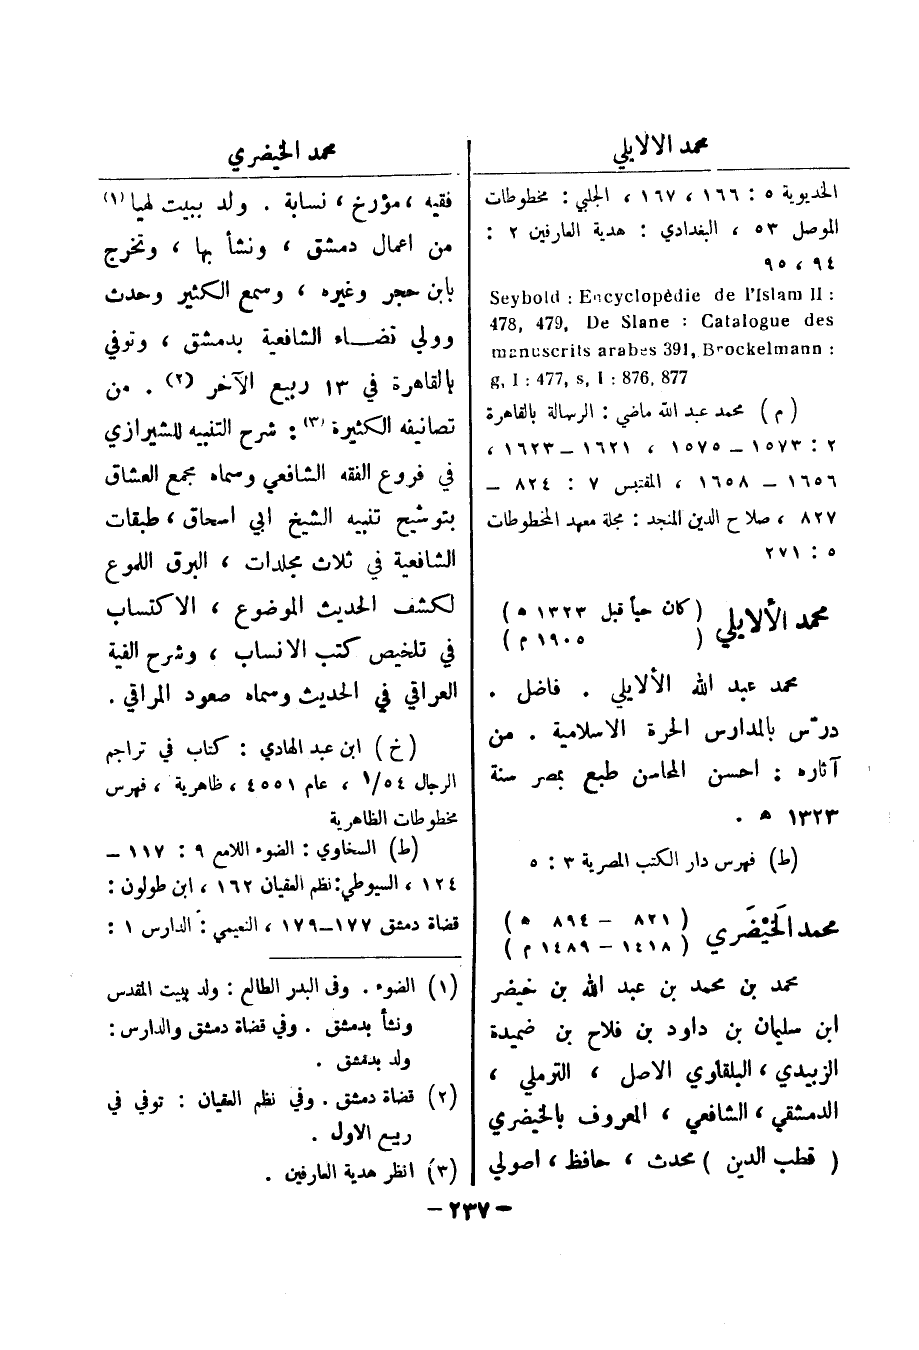 محمد الالايلي
الخديوية ٥ : ١٦٦ ، ١٦٧ ، الجلبي : مخطوطات
الموصل ٥٣ ، البغدادي : هدية العارفين ٢ :
٩٤ ، ٩٥
Seybold : Encyclopédie de l'Islam II :
478, 479, De Slane : Catalogue des
manuscrits arabes 391, Brockelmann :
g, I : 477, s, I : 876, 877
( م ) محمد عبد الله ماضي : الرسالة بالقاهرة
٢ : ١٥٧٣ – ١٥٧٥ ، ١٦٢١ – ١٦٢٣ ،
١٦٥٦ – ١٦٥٨ ، المقتبس ٧ : ٨٢٤ –
٨٢٧ ، صلاح الدين المنجد : مجلة معهد المخطوطات
٥ : ٢٧١
محمد الألايلي ( كان حياً قبل ١٣٢٣ ه )
( ١٩٠٥ م )
محمد عبد الله الألايلي . فاضل .
درّس بالمدارس الحرة الاسلامية . من
آثاره : احسن المحاسن طبع بمصر سنة
١٣٢٣ ه .
(ط) فهرس دار الكتب المصرية ٣ : ٥
محمد الخَيْضَري ( ٨٢١ – ٨٩٤ ه )
( ١٤١٨ – ١٤٨٩ م )
محمد بن محمد بن عبد الله بن خيضر
ابن سليمان بن داود بن فلاح بن ضميدة
الزبيدي ، البلقاوي الاصل ، الترملي ،
الدمشقي ، الشافعي ، المعروف بالخيضري
( قطب الدين ) محدث ، حافظ ، اصولي
محمد الخيضري
فقيه ، مؤرخ ، نسابة . ولد ببيت لهيا (١)
من اعمال دمشق ، ونشأ بها ، وتخرج
بابن حجر وغيره ، وسمع الكثير وحدث
وولي قضاء الشافعية بدمشق ، وتوفي
بالقاهرة في ١٣ ربيع الآخر (٢) . من
تصانيفه الكثيرة (٣) : شرح التنبيه للشيرازي
في فروع الفقه الشافعي وسماه مجمع العشاق
بتوشيح تنبيه الشيخ ابي اسحاق ، طبقات
الشافعية في ثلاث مجلدات ، البرق اللموع
لكشف الحديث الموضوع ، الاكتساب
في تلخيص كتب الانساب ، وشرح الفية
العراقي في الحديث وسماه صعود المراقي .
( خ ) ابن عبد الهادي : كتاب في تراجم
الرجال ١/٥٤ ، عام ٤٥٥١ ، ظاهرية ، فهرس
مخطوطات الظاهرية
(ط) السخاوي : الضوء اللامع ٩ : ١١٧ –
١٢٤ ، السيوطي : نظم العقيان ١٦٢ ، ابن طولون :
قضاة دمشق ١٧٧–١٧٩ ، النعيمي : الدارس ١ :
(١) الضوء . وفي البدر الطالع : ولد ببيت المقدس
ونشأ بدمشق . وفي قضاة دمشق والدارس :
ولد بدمشق .
(٢) قضاة دمشق . وفي نظم العقيان : توفي في
ربيع الاول .
(٣) انظر هدية العارفين .
– ٢٣٧ –